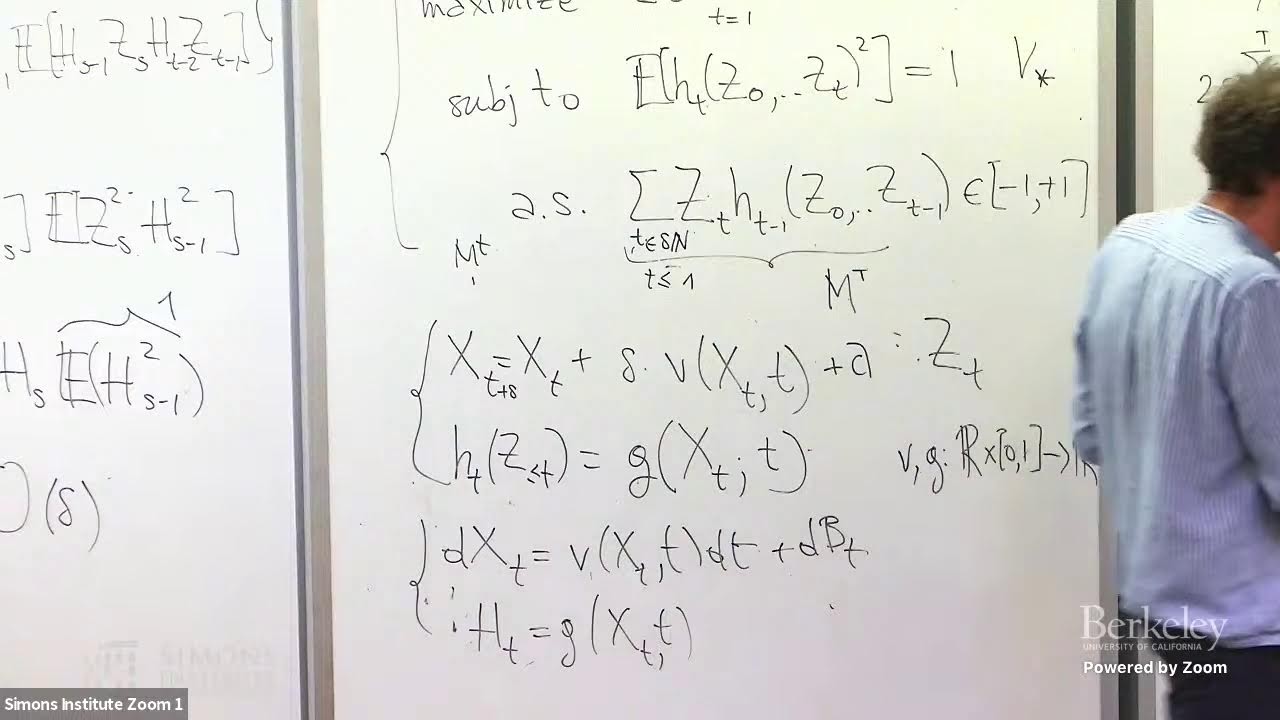 , 𝔼[H_{s-1} Z_s H_{t-2} Z_{t-1}]}
_s] 𝔼[Z_s^2 H_{s-1}^2]
1
H_s 𝔼(H_{s-1}^2)
(δ)
maximize
t=1
subj to 𝔼[h_t(Z_0,..Z_t)^2] = 1 V_*
a.s. Σ Z_t h_{t-1}(Z_0,..Z_{t-1}) ∈ [-1,+1]
t∈δℕ
t≤1
M^t
M^T
X_{t+δ} = X_t + δ. v(X_t,t) + Z_t
h_t(Z_{≤t}) = g(X_t; t) v, g: ℝ×[0,1]→ℝ
dX_t = v(X_t,t)dt + dB_t
H_t = g(X_t,t)
T
2
Berkeley
UNIVERSITY OF CALIFORNIA
Powered by Zoom
SIMONS
INSTITUTE
Simons Institute Zoom 1